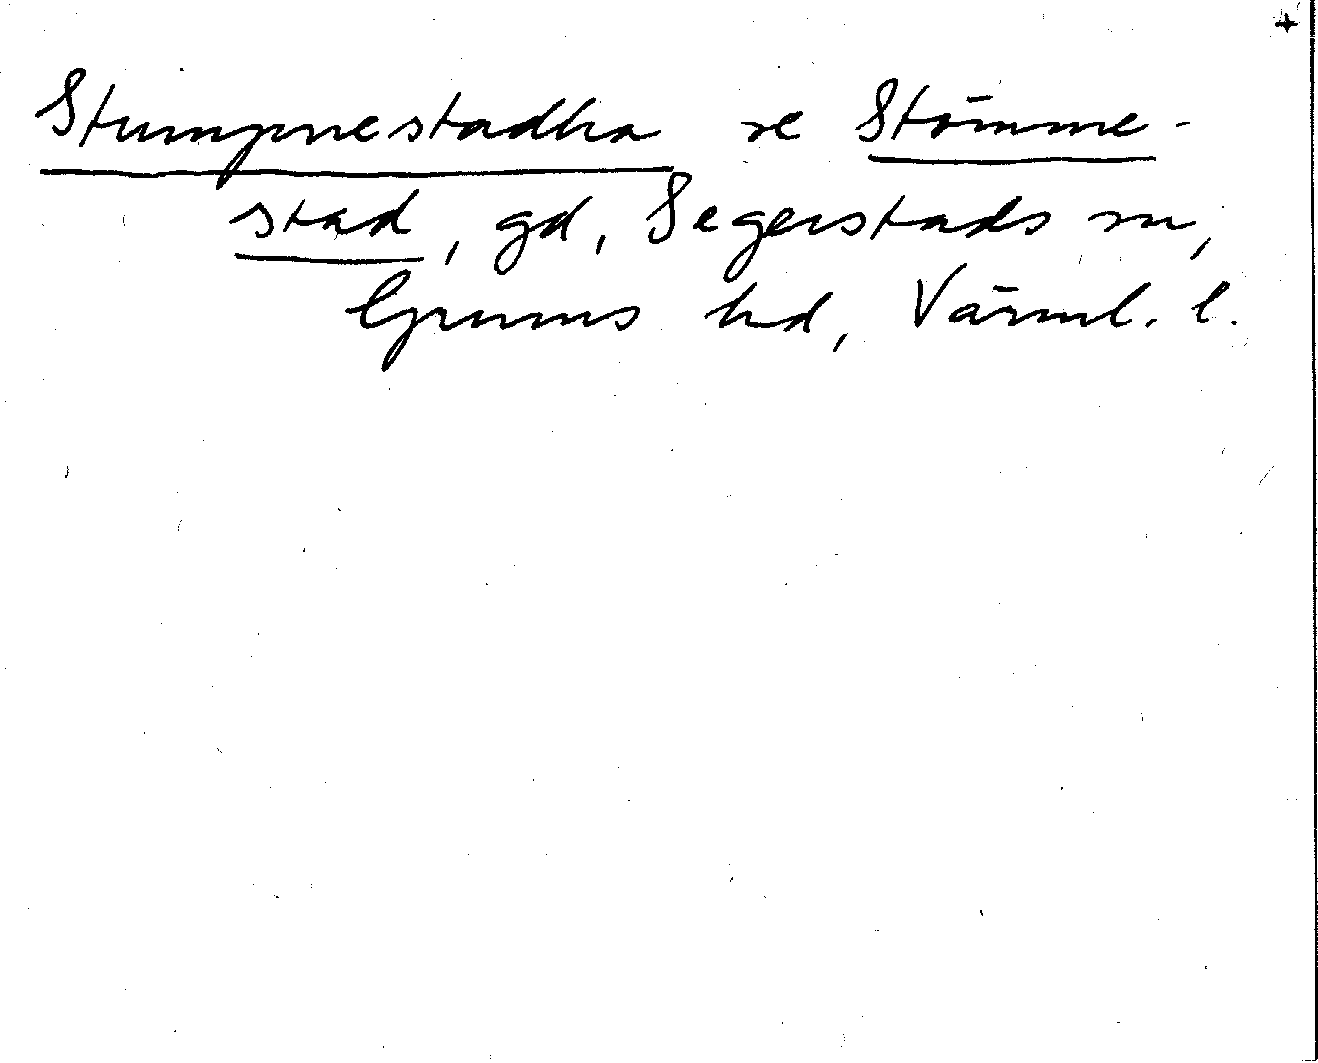 +
Stumpnestadha se Stömme-
stad, gd, Segerstads sn,
Grums hd, Värml. l.